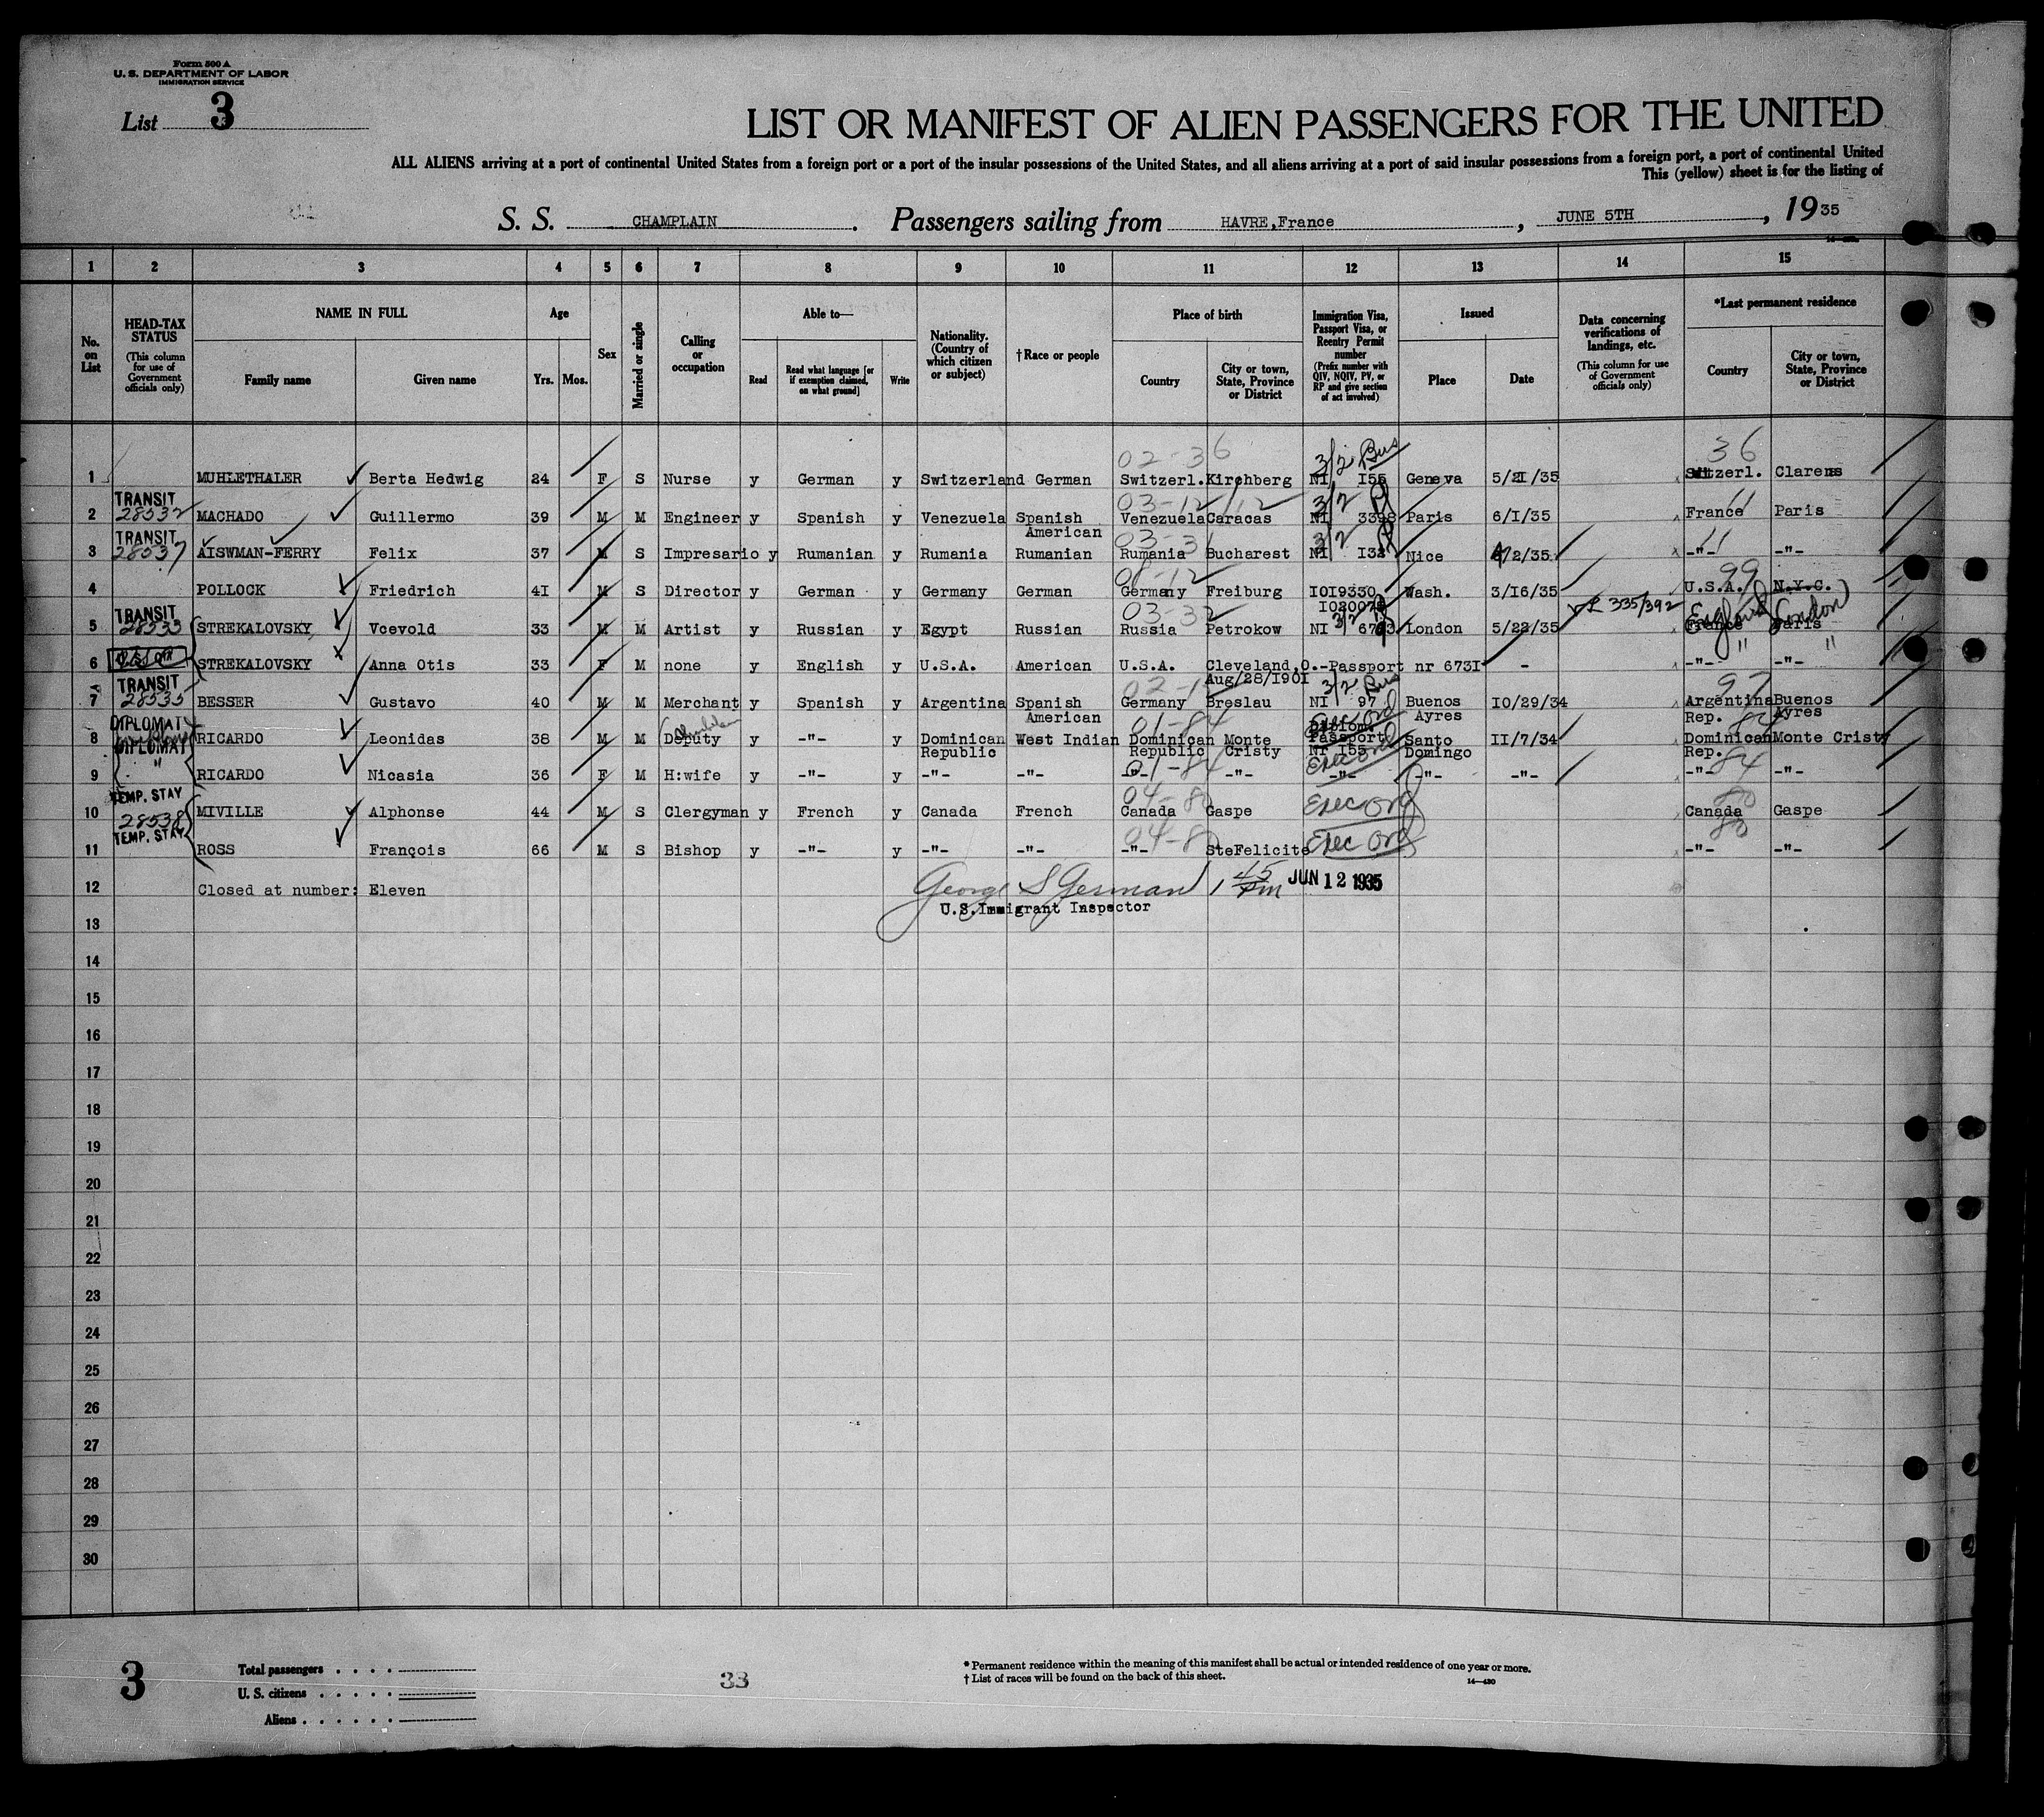 Form 500 A
U. S. DEPARTMENT OF LABOR
IMMIGRATION SERVICE
List 3
LIST OR MANIFEST OF ALIEN PASSENGERS FOR THE UNITED
ALL ALIENS arriving at a port of continental United States from a foreign port or a port of the insular possessions of the United States, and all aliens arriving at a port of said insular possessions from a foreign port, a port of continental United
This (yellow) sheet is for the listing of
S. S. CHAMPLAIN. Passengers sailing from HAVRE,France, JUNE 5TH, 1935
1 2 3 4 5 6 7 8 9 10 11 12 13 14 15
No. on List
HEAD-TAX STATUS (This column for use of Government officials only)
NAME IN FULL Family name Given name
Age Yrs. Mos.
Sex
Married or single
Calling or occupation
Able to— Read Read what language [or if exemption claimed, on what ground] Write
Nationality. (Country of which citizen or subject)
†Race or people
Place of birth Country City or town, State, Province or District
Immigration Visa, Passport Visa, or Reentry Permit number (Prefix number with QIV, NQIV, PV, or RP and give section of act involved)
Issued Place Date
Data concerning verifications of landings, etc. (This column for use of Government officials only)
*Last permanent residence Country City or town, State, Province or District
02-36 3/2 Bus 36
1 MUHLETHALER Berta Hedwig 24 F S Nurse y German y Switzerland German Switzerl. Kirchberg NI 155 Geneva 5/21/35 Switzerl. Clarens
TRANSIT 03-12/12 3/2 11
2 28532 MACHADO Guillermo 39 M M Engineer y Spanish y Venezuela Spanish American Venezuela Caracas NI 3398 Paris 6/1/35 France Paris
TRANSIT 03-31 3/2 11
3 28537 AISWMAN-FERRY Felix 37 M S Impresario y Rumanian y Rumania Rumanian Rumania Bucharest NI 132 Nice 4/2/35 -"- -"-
08-12 99
4 POLLOCK Friedrich 41 M S Director y German y Germany German Germany Freiburg 1019330 Wash. 3/16/35 U.S.A. N.Y.C.
TRANSIT 03-32 1020075 3/2 335/392 England London
5 28533 STREKALOVSKY Vcevold 33 M M Artist y Russian y Egypt Russian Russia Petrokow NI London 5/22/35 France Paris
" "
6 STREKALOVSKY Anna Otis 33 F M none y English y U.S.A. American U.S.A. Cleveland,O.-Passport nr 6731 - -"- -"-
Aug/28/1901
TRANSIT 3/2 Bus 97
7 28535 BESSER Gustavo 40 M M Merchant y Spanish y Argentina Spanish American Germany Breslau NI 97 Buenos Ayres 10/29/34 Argentina Rep. Buenos Ayres
DIPLOMAT 01-84 Exec ord 84
8 DIPLOMAT RICARDO Leonidas 38 M M Deputy y -"- y Dominican Republic West Indian Dominican Republic Monte Cristy Diplom. Passport NI 155 Santo Domingo 11/7/34 Dominican Rep. Monte Cristy
" 01-84 Exec ord 84
9 RICARDO Nicasia 36 F M H:wife y -"- y -"- -"- -"- -"- -"- -"- -"- -"- -"-
TEMP. STAY 04-80 80
10 28538 MIVILLE Alphonse 44 M S Clergyman y French y Canada French Canada Gaspe Exec ord Canada Gaspe
TEMP. STAY 04-80 80
11 ROSS François 66 M S Bishop y -"- y -"- -"- -"- SteFelicite Exec ord -"- -"-
12 Closed at number: Eleven George S German 1 45 Pm JUN 12 1935
U.S.Immigrant Inspector
13
14
15
16
17
18
19
20
21
22
23
24
25
26
27
28
29
30
3
Total passengers
U. S. citizens
Aliens
33
* Permanent residence within the meaning of this manifest shall be actual or intended residence of one year or more.
† List of races will be found on the back of this sheet.
14—430